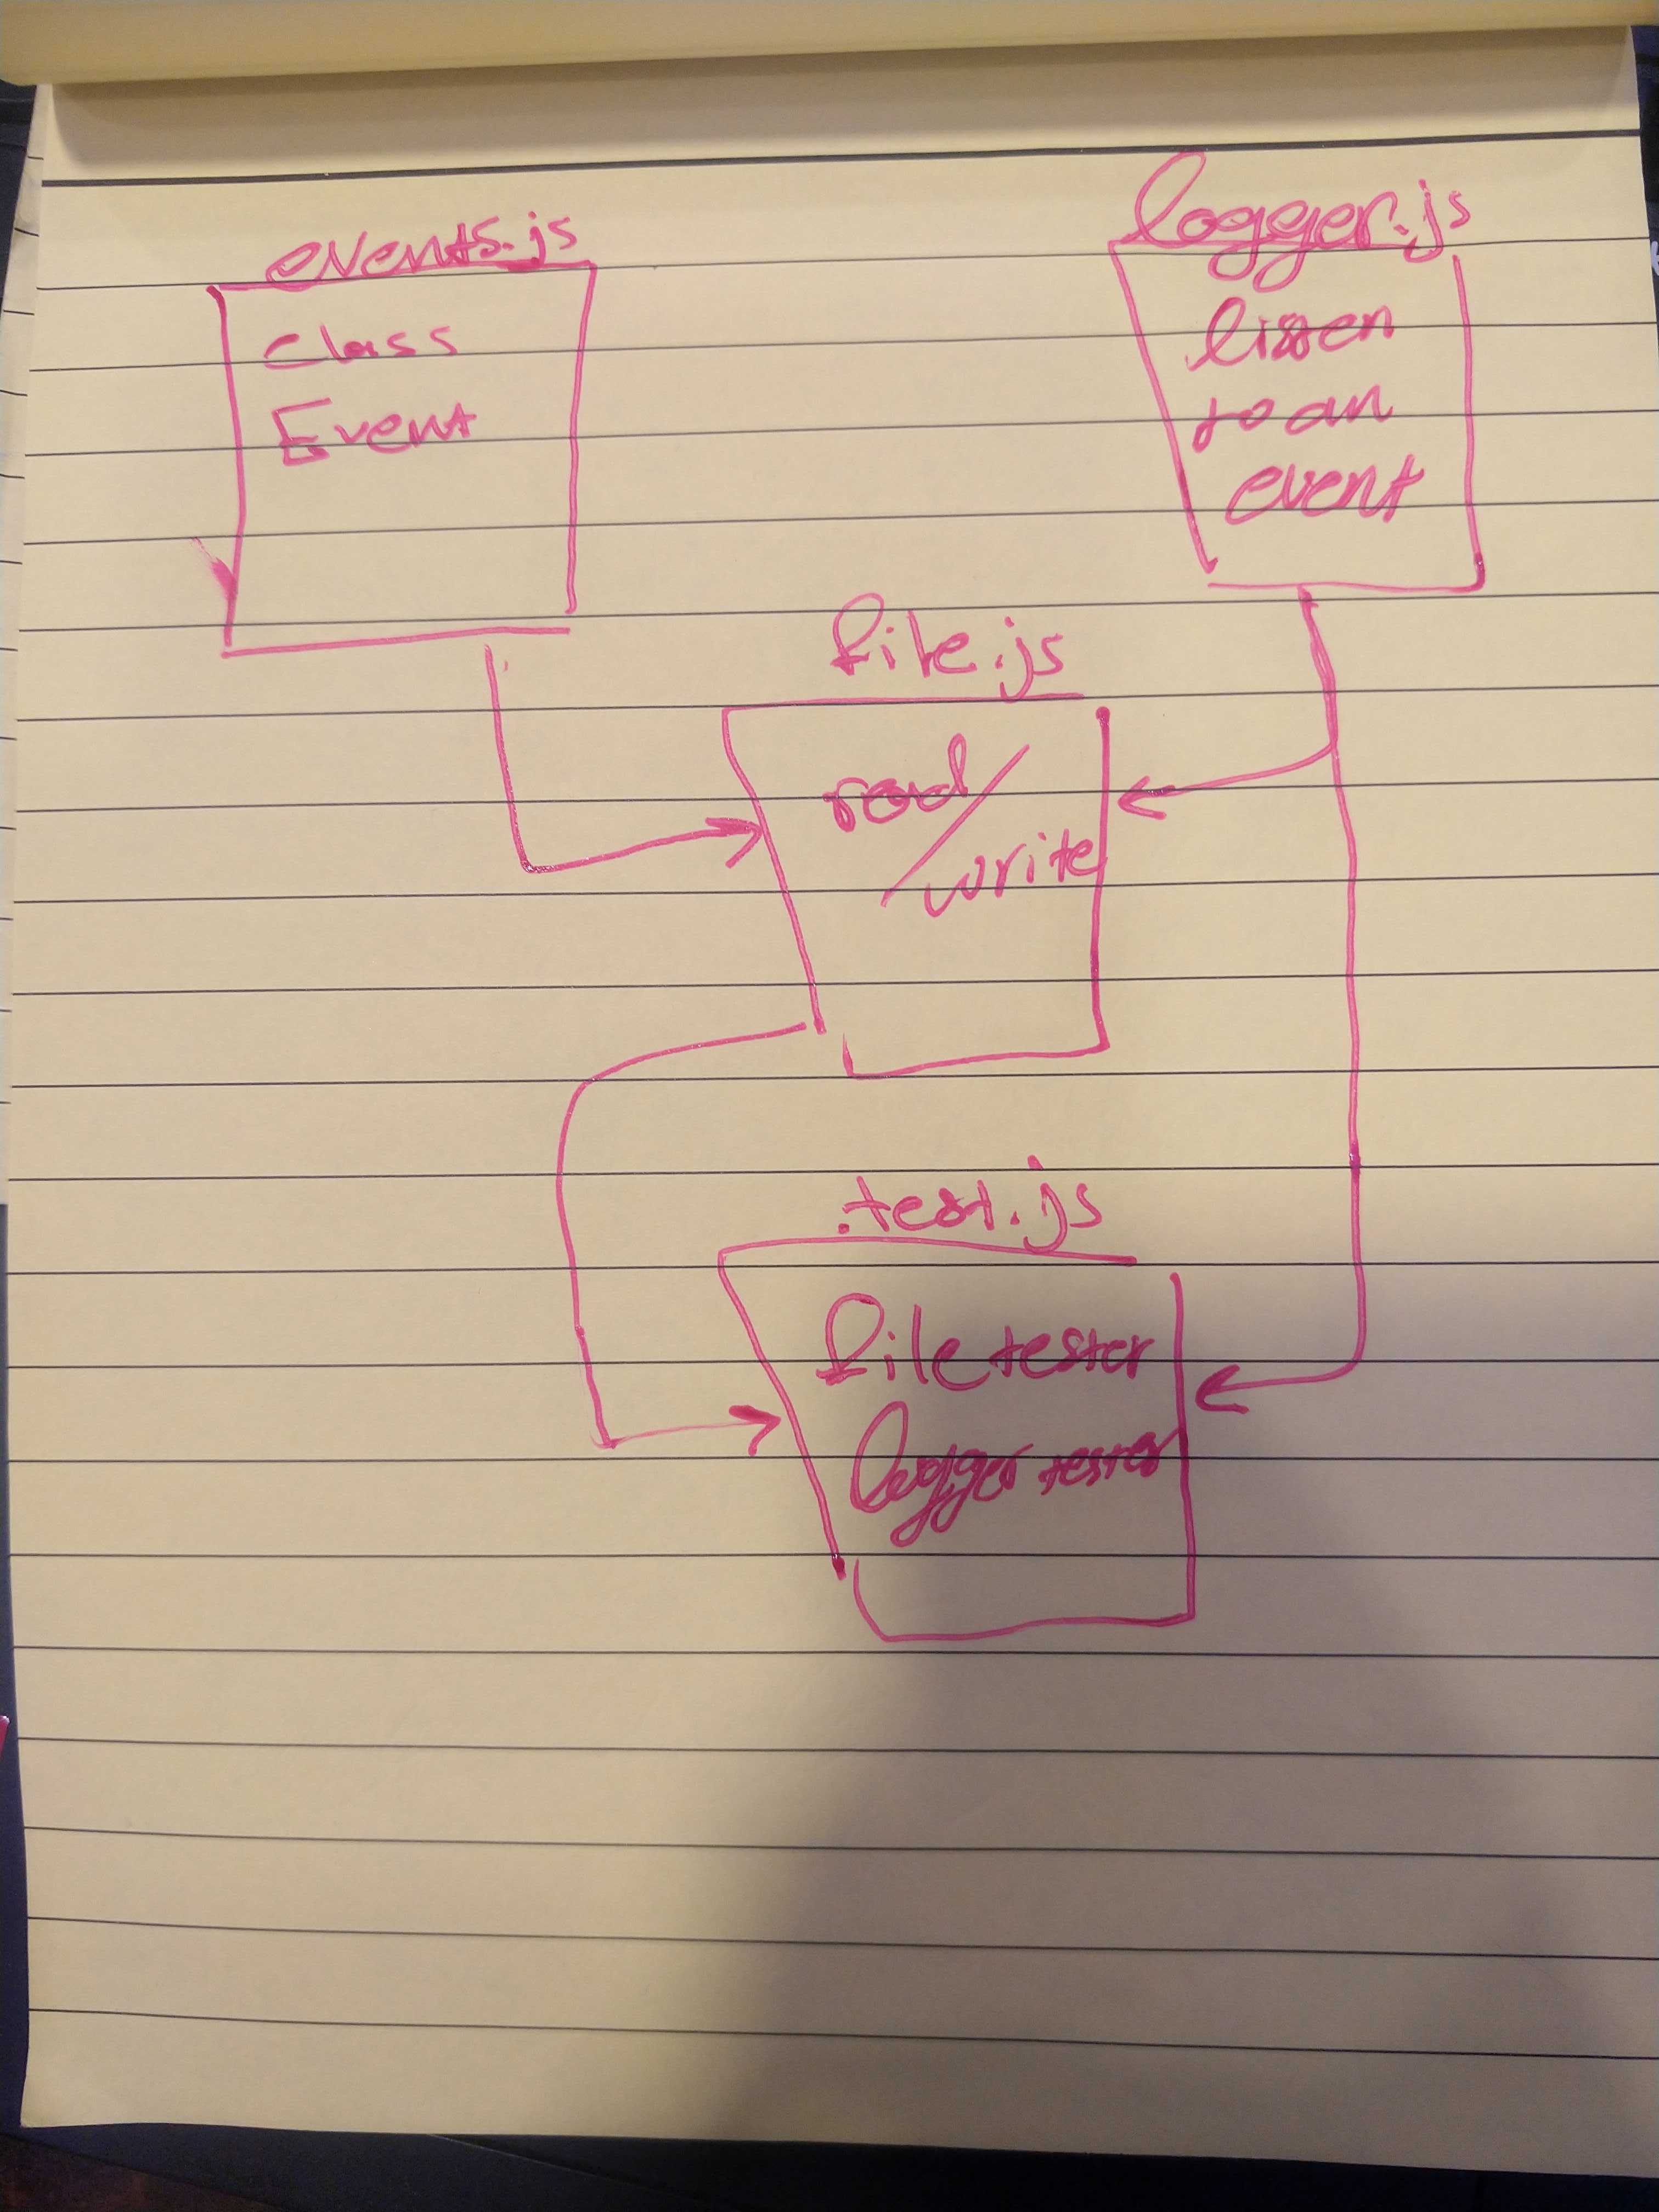 events.js
class
Event
logger.js
listen
to an
event
file.js
read/
write
.test.js
file tester
logger tester